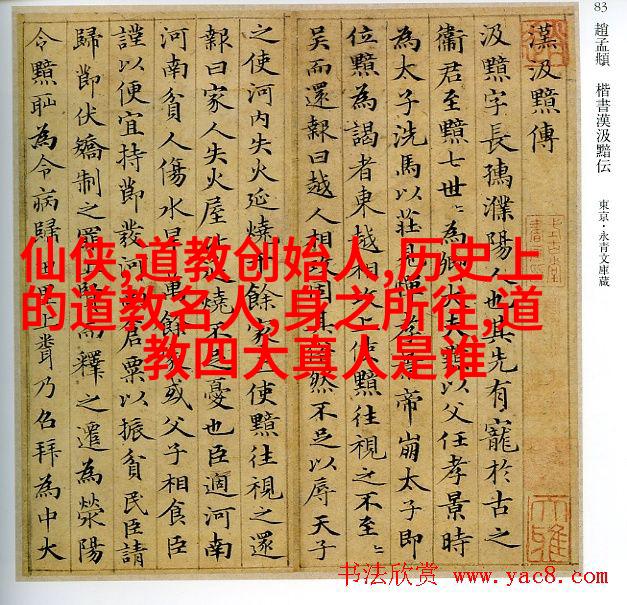 83 趙孟頫 楷書漢汲黯伝 東京・永青文庫蔵
漢汲黯傳
汲黯字長孺濮陽人也其先有寵於古之
衛君至黯七世〻為卿大夫黯以父任孝景時
為太子洗馬以莊見憚孝景帝崩太子即
位黯為謁者東越相攻上使黯往視之不至〻
吳而還報曰越人相攻固其俗然不足以辱天子
之使河內失火延燒千餘家上使黯往視之還
報曰家人失火屋比延燒不足憂也臣過河南
河南貧人傷水旱萬餘家或父子相食臣
謹以便宜持節發河南倉粟以振貧民臣請
歸節伏矯制之罪上賢而釋之遷為滎陽
令黯恥為令病歸田里上聞乃召拜為中大
仙侠,道教创始人,历史上
的道教名人,身之所往,道
教四大真人是谁
大雅
书法欣赏 www.yac8.com